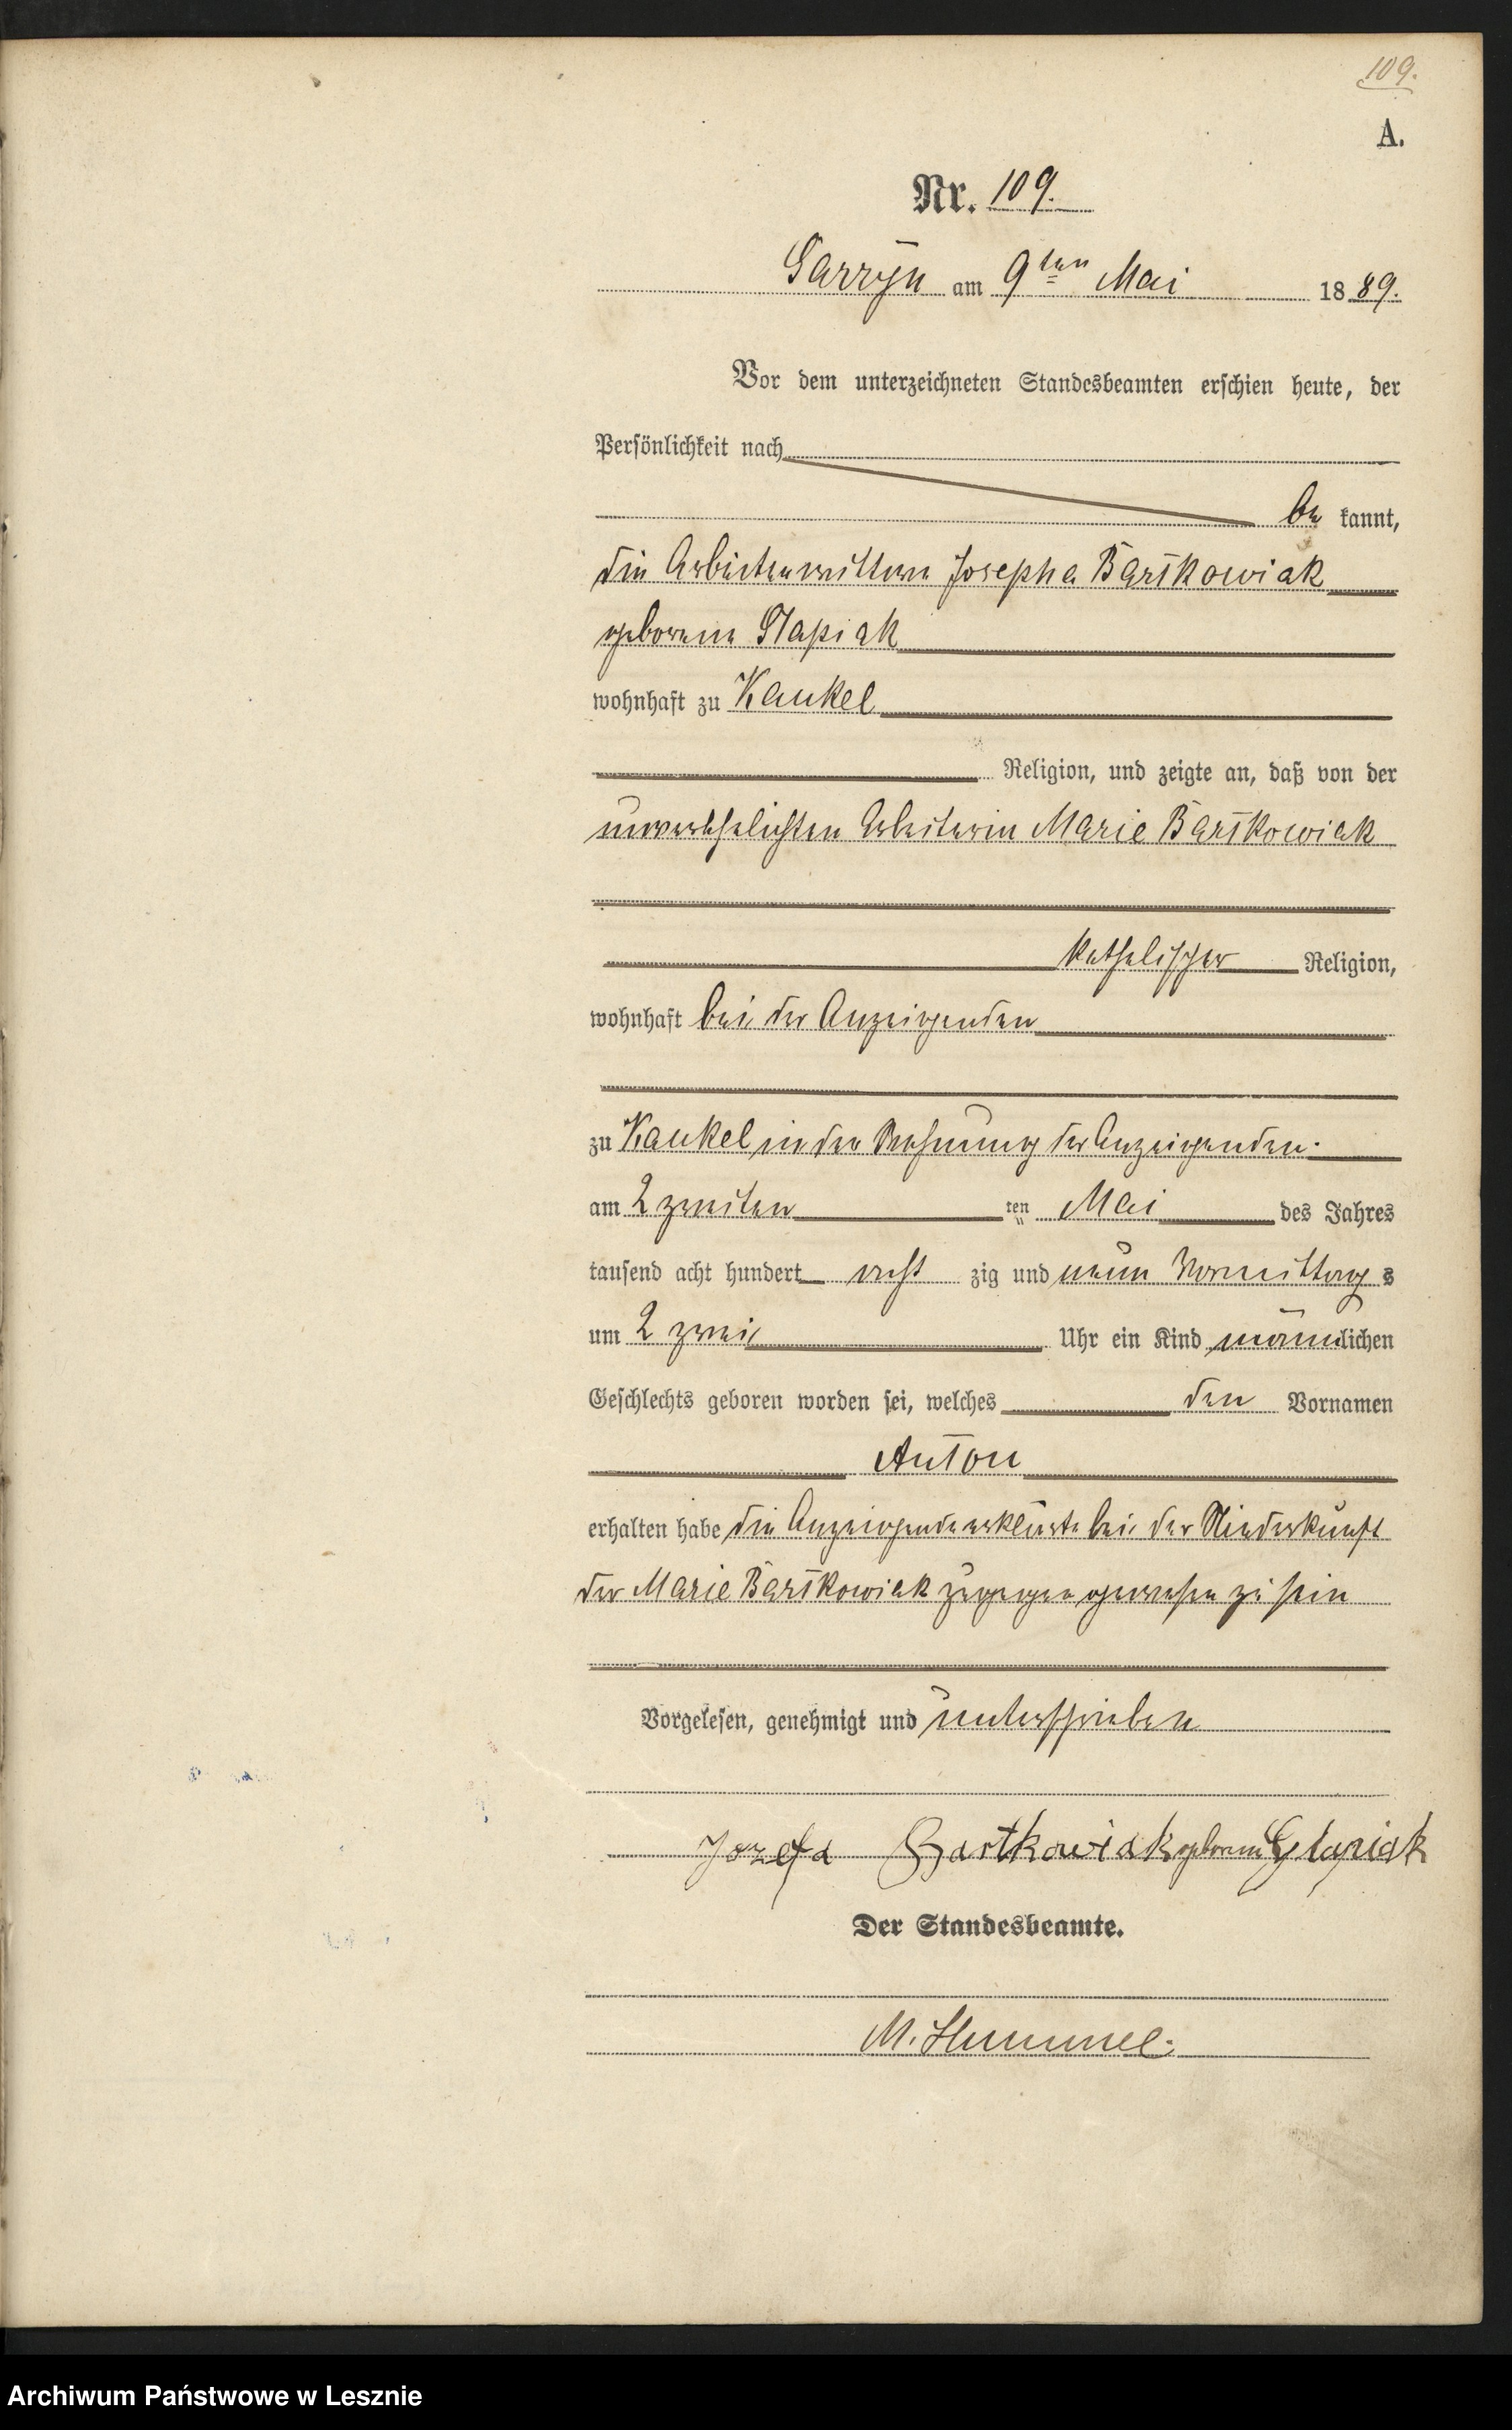 109.
A.
Nr. 109.
Garzyn am 9ten Mai 1889.
Vor dem unterzeichneten Standesbeamten erschien heute, der
Persönlichkeit nach
be kannt,
die Arbeiterwittwe Josepha Bartkowiak
geborene Glapiak
wohnhaft zu Kankel
Religion, und zeigte an, daß von der
unverehelichten Arbeiterin Marie Bartkowiak
katholischer Religion,
wohnhaft bei der Anzeigenden
zu Kankel in der Wohnung der Anzeigenden
am 2 zweiten ten Mai des Jahres
tausend acht hundert acht zig und neun Vormittag s
um 2 zwei Uhr ein Kind männlichen
Geschlechts geboren worden sei, welches den Vornamen
Anton
erhalten habe die Anzeigende erklärte bei der Niederkunft
der Marie Bartkowiak zugegen gewesen zu sein
Vorgelesen, genehmigt und unterschrieben
Jozefa Bartkowiak geborene Glapiak
Der Standesbeamte.
M. Hummel.
Archiwum Państwowe w Lesznie